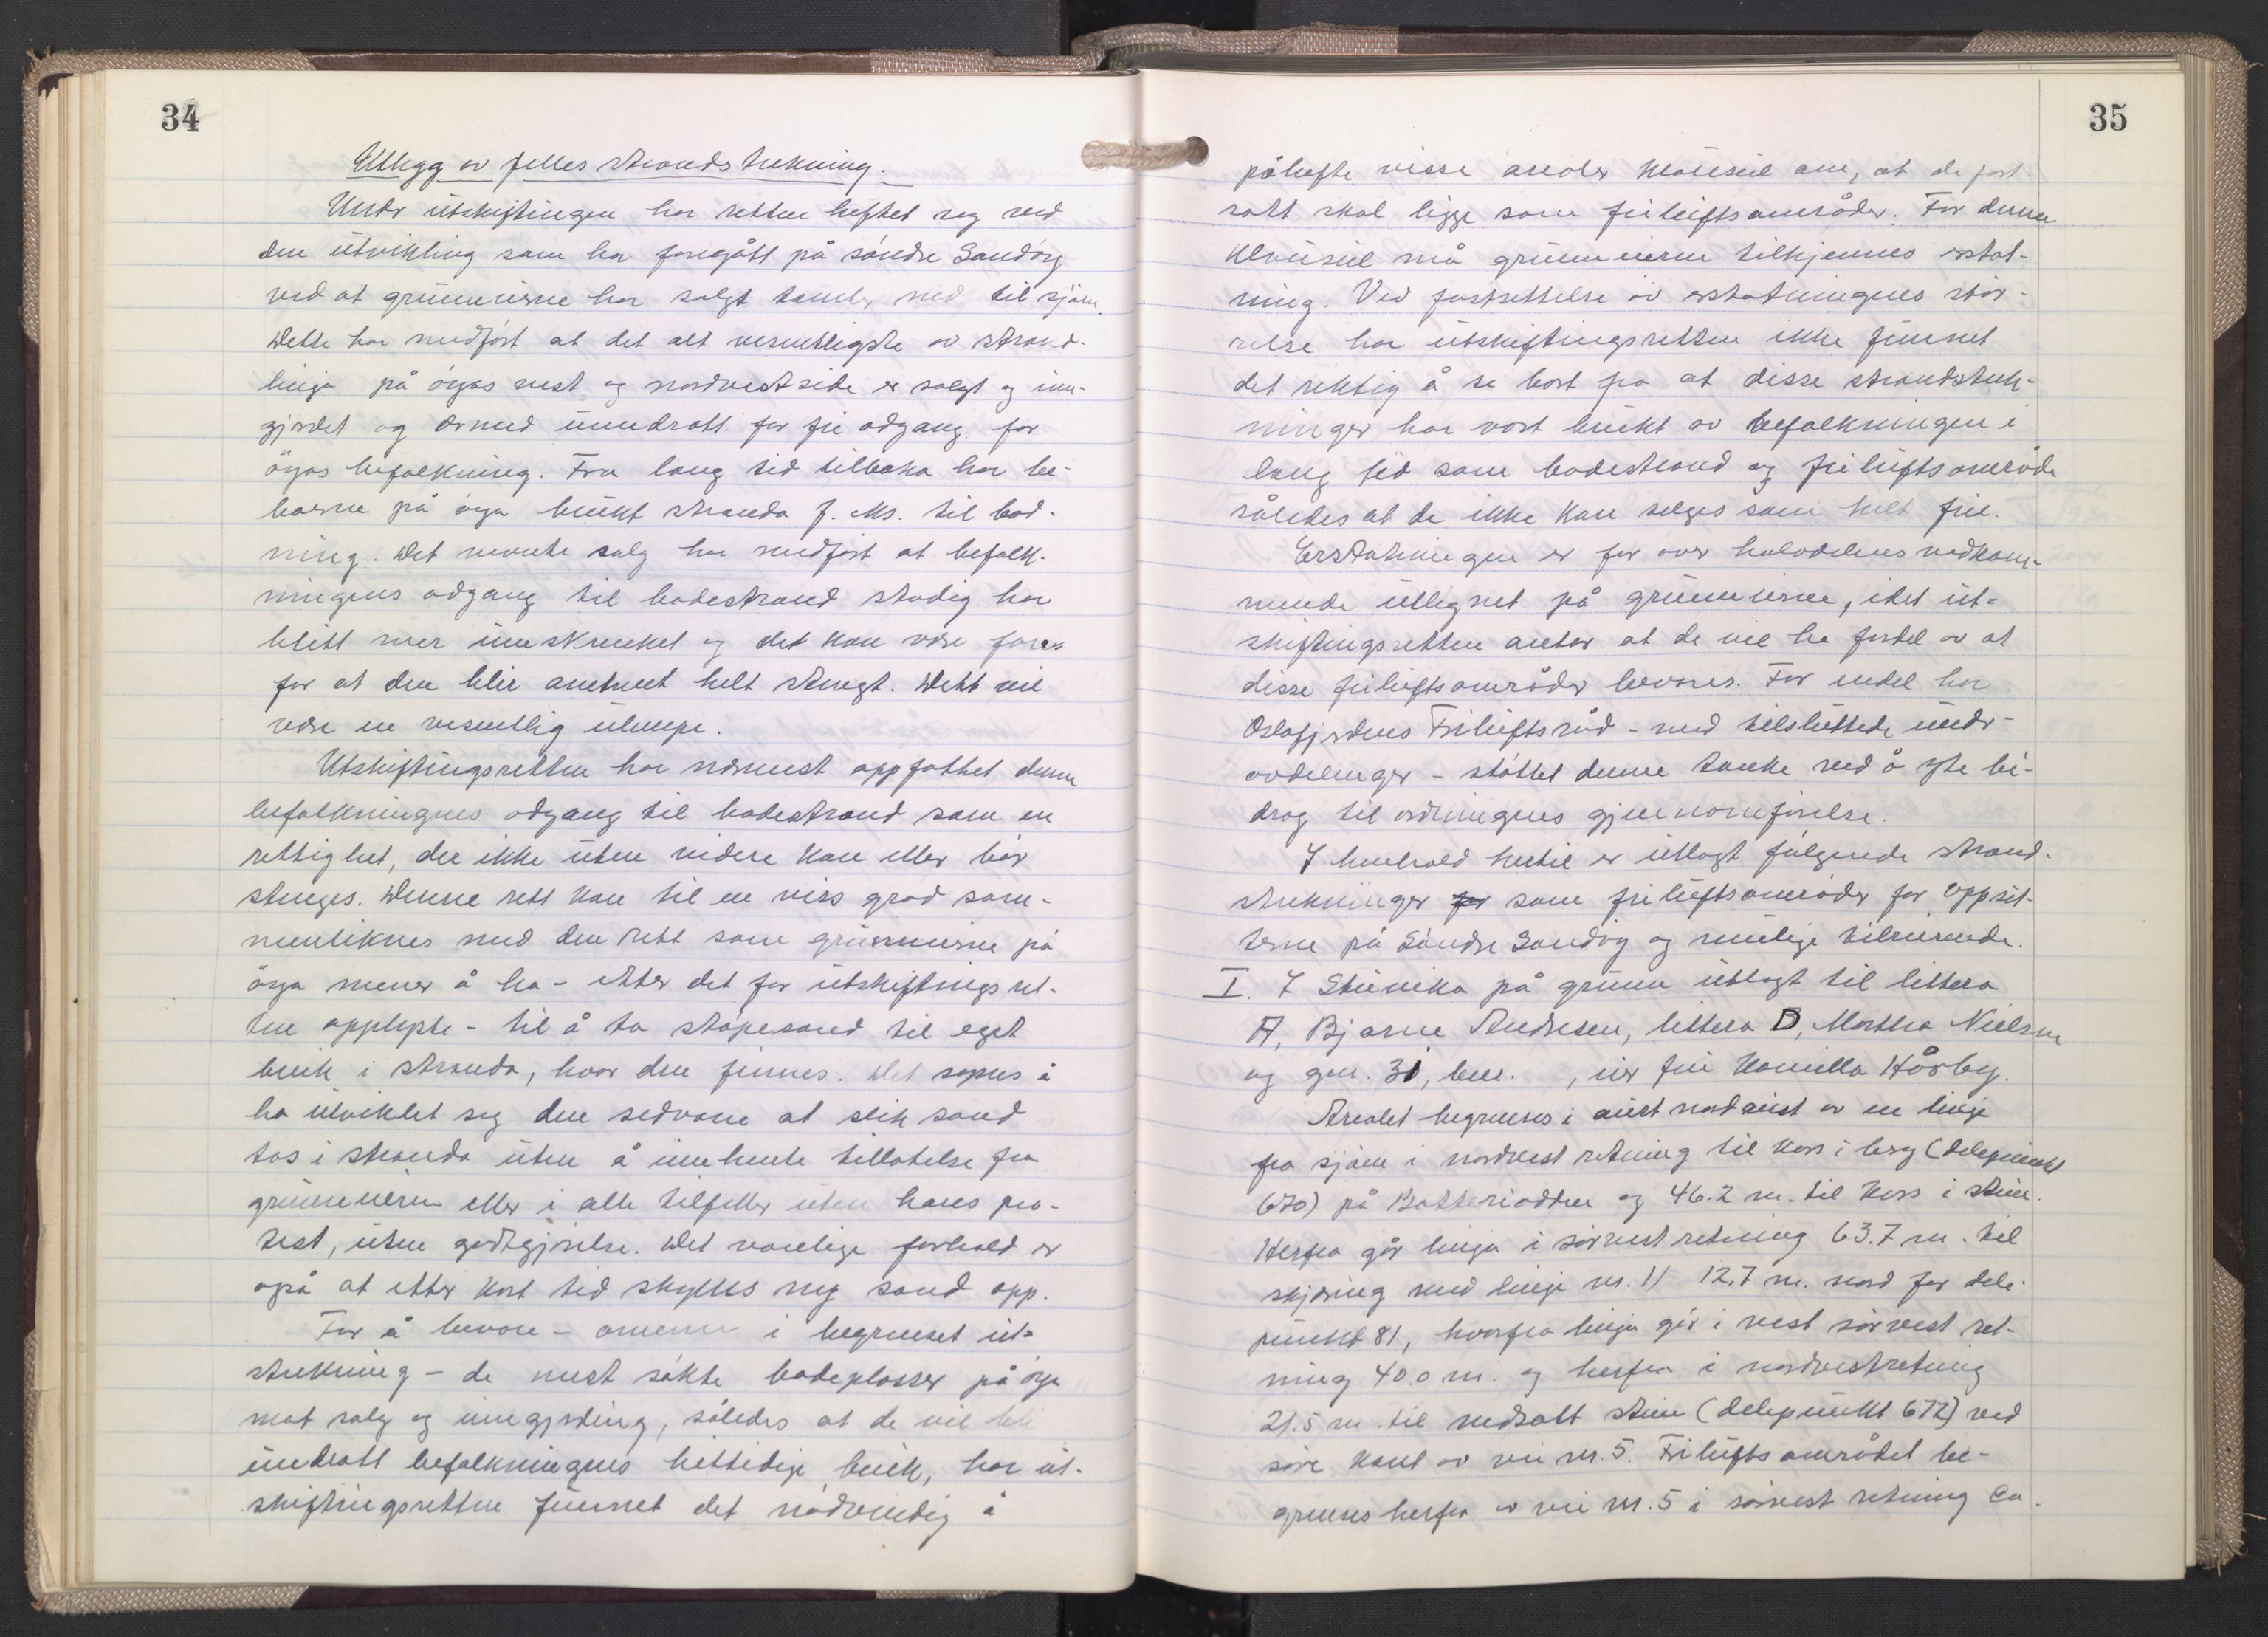 34
Utlegg av felles strandstrekning.
Under utskiftingen har retten heftet seg ved
den utvikling som har foregått på söndre Sandöy
ved at grunneierne har solgt tomter ned til sjöen.
Dette har medfört at det alt vesentligste av strand-
linja på öyas vest og nordvestside er solgt og inn-
gjerdet og dermed unndratt for fri adgang for
öyas befolkning. Fra lang tid tilbake har be-
boerne på öya brukt stranda f. eks. til bad-
ning. Det nevnte salg har medfört at befolk-
ningens adgang til badestrand stadig har
blitt mer innskrenket og det kan være fare
for at den blir omtrent helt stengt. Dette vil
være en vesentlig ulempe.
Utskiftingsretten har nærmest oppfattet denne
befolkningens adgang til badestrand som en
rettighet, der ikke uten videre kan eller bör
stenges. Denne rett kan til en viss grad sam-
menliknes med den rett som grunneierne på
öya mener å ha - etter det for utskiftingsret-
ten opplyste - til å ta stöpesand til eget
bruk i stranda, hvor den finnes. Det synes å
ha utviklet seg den sedvane at slik sand
tas i stranda uten å innhente tillatelse fra
grunneieren eller i alle tilfeller uten hans pro-
test, uten godtgjörelse. Det vanlige forhold er
også at etter kort tid skylles ny sand opp.
For å bevare - om enn i begrenset ut-
strekning - de mest sökte badeplasser på öya
mot salg og inngjerding, således at de vil bli
undratt befolkningens hittidige bruk, har ut-
skiftingsretten funnet det nödvendig å
35
påhefte visse arealer klausul om, at de fort-
satt skal ligge som friluftsområder. For denne
klausul må grunneierne tilkjennes erstat-
ning. Ved fastsettelse av erstatningens stör-
relse har utskiftingsretten ikke funnet
det riktig å se bort fra at disse strandstrek-
ninger har vært brukt av befolkningen i
lang tid som badestrand og friluftsområde
således at de ikke kan selges som helt frie.
Erstatningen er for over halvdelens vedkom-
mende utlignet på grunneierne, idet ut-
skiftingsretten antar at de vil ha fordel av at
disse friluftsområder bevares. For endel har
Oslofjordens Friluftsråd - med tilsluttede under-
avdelinger - stöttet denne tanke ved å yte bi-
drag til ordningens gjennomförelse.
I henhold hertil er utlagt fölgende strand-
strekninger for som friluftsområder for oppsit-
terne på Söndre Sandöy og mulige tilreisende.
I. I Stuevika på grunn utlagt til littera
A, Bjarne Andresen, littera D, Martha Nielsen
og gnr. 31, bnr. , eier fru Kamilla Hårby.
Arealet begrenses i aust nordaust av en linje
fra sjöen i nordvest retning til kors i berg (delepunkt
670) på Batteriodden og 46.2 m. til kors i stein.
Herfra går linja i sörvest retning 63.7 m. til
skjæring med linje nr. 11 12.7 m. nord for dele-
punkt 81, hvorfra linja går i vest sörvest ret-
ning 40.0 m. og herfra i nordvestretning
21.5 m. til nedsatt stein (delepunkt 672) ved
söre kant av vei nr. 5. Friluftsområdet be-
grenses herfra av vei nr. 5 i sörvest retning ca.